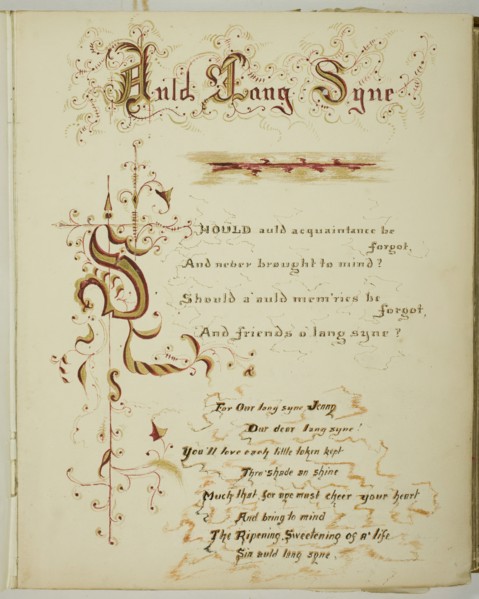 Auld Lang Syne
SHOULD auld acquaintance be
forgot,
And never brought to mind?
Should a' auld mem'ries be
forgot,
And friends o' lang syne?
For Our lang syne Jenny
Our dear lang syne!
You'll love each little token kept
Thro' shade an shine
Much that for aye must cheer your heart
And bring to mind
The Ripening, Sweetening of a' life
Sin auld lang syne